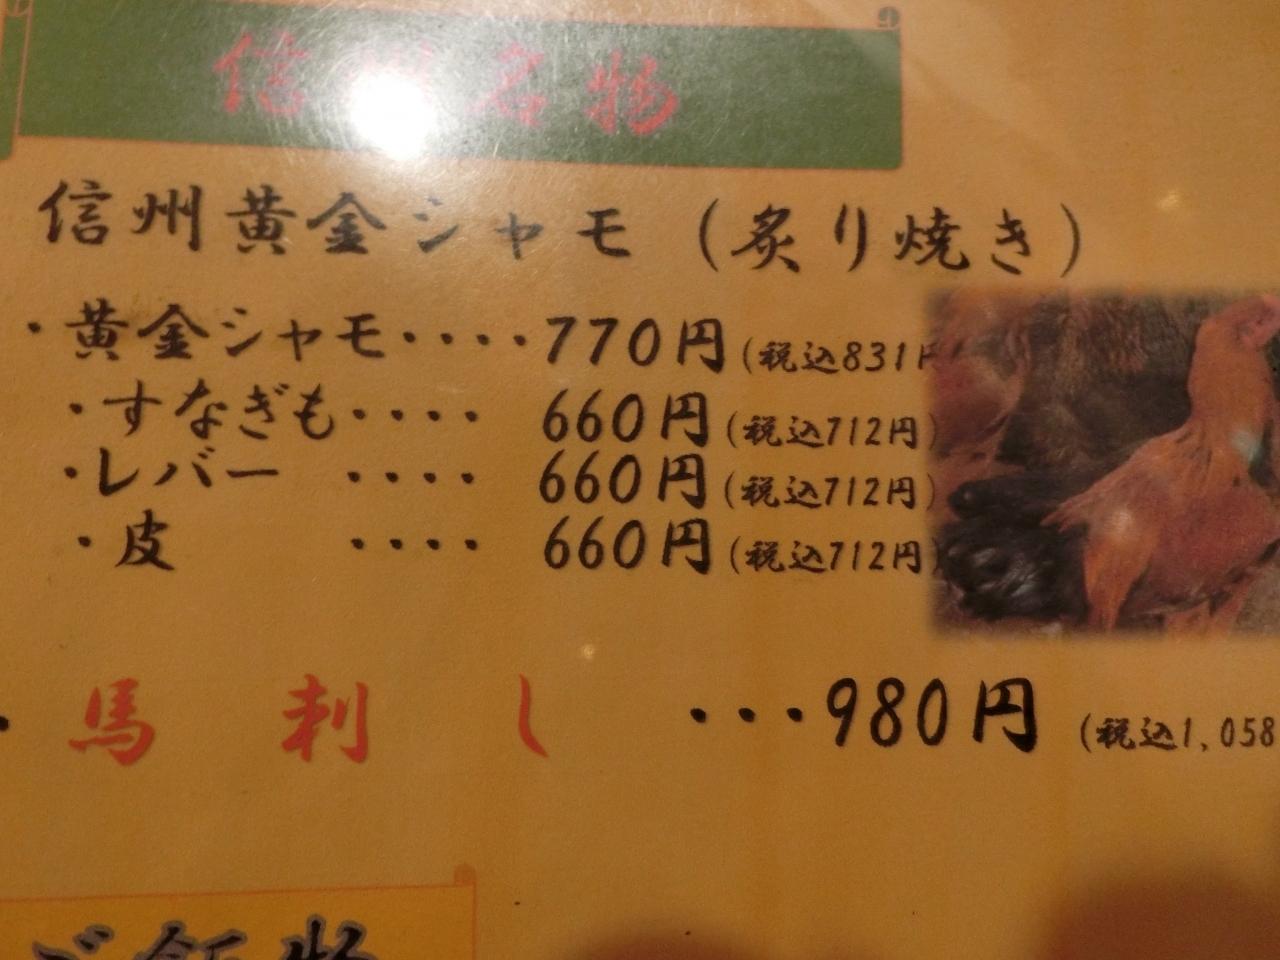 信州名物
信州黄金シャモ（炙り焼き）
・黄金シャモ････770円(税込831円
・すなぎも････ 660円(税込712円)
・レバー ････ 660円(税込712円)
・皮 ････ 660円(税込712円)
・馬刺し ･･･980円 (税込1,058
ご飯物